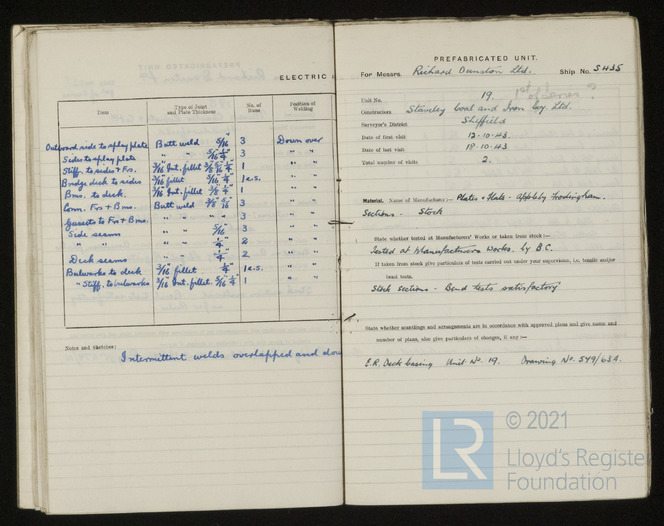 ELECTRIC
Item
Type of Joint and Plate Thickness
No. of Runs
Position of Welding
Outboard side to splay plate Butt weld 5/16" 3 Down over
Sides to splay plate " " 5/16 1/4" 3 " "
Stiff. to sides + Frs. 3/16 Int. fillet 1 " "
Bridge deck to sides 3/16 fillet 1/4" 1 e.s. " "
Bms. to deck. 3/16 Int. fillet 1/4" 1 " "
Conn. Frs + Bms. Butt weld 3/8 5/16 3 " "
Gussets to Frs + Bms. " " " " 3 " "
Side seams " " 5/16" 3 " "
" " " " 1/4" 2 " "
Deck seams " " 1/4" 2 " "
Bulwarks to deck 3/16 fillet 1/4" 1 e.s. " "
" Stiff. to bulwarks 3/16 Int. fillet 5/16 1/4" 1 " "
Notes and Sketches:
Intermittent welds overlapped and
PREFABRICATED UNIT.
For Messrs. Richard Dunston Ltd. Ship No. S 435
Unit No. 19.
Constructors Staveley Coal and Iron Coy. Ltd.
Surveyor's District Sheffield
Date of first visit 12-10-43
Date of last visit 18-10-43
Total number of visits 2.
Material. Name of Manufacturer:— Plates + Flats - Appleby Frodingham.
Sections - Stock
State whether tested at Manufacturers' Works or taken from stock:—
Tested at Manufacturers Works. by B.C.
If taken from stock give particulars of tests carried out under your supervision, i.e. tensile and/or
bend tests.
Stock sections - Bend tests satisfactory
State whether scantlings and arrangements are in accordance with approved plans and give name and
number of plans, also give particulars of changes, if any:—
E.R. Deck Casing Unit No. 19. Drawing No. 549/634.
LR
© 2021
Lloyd's Register
Foundation